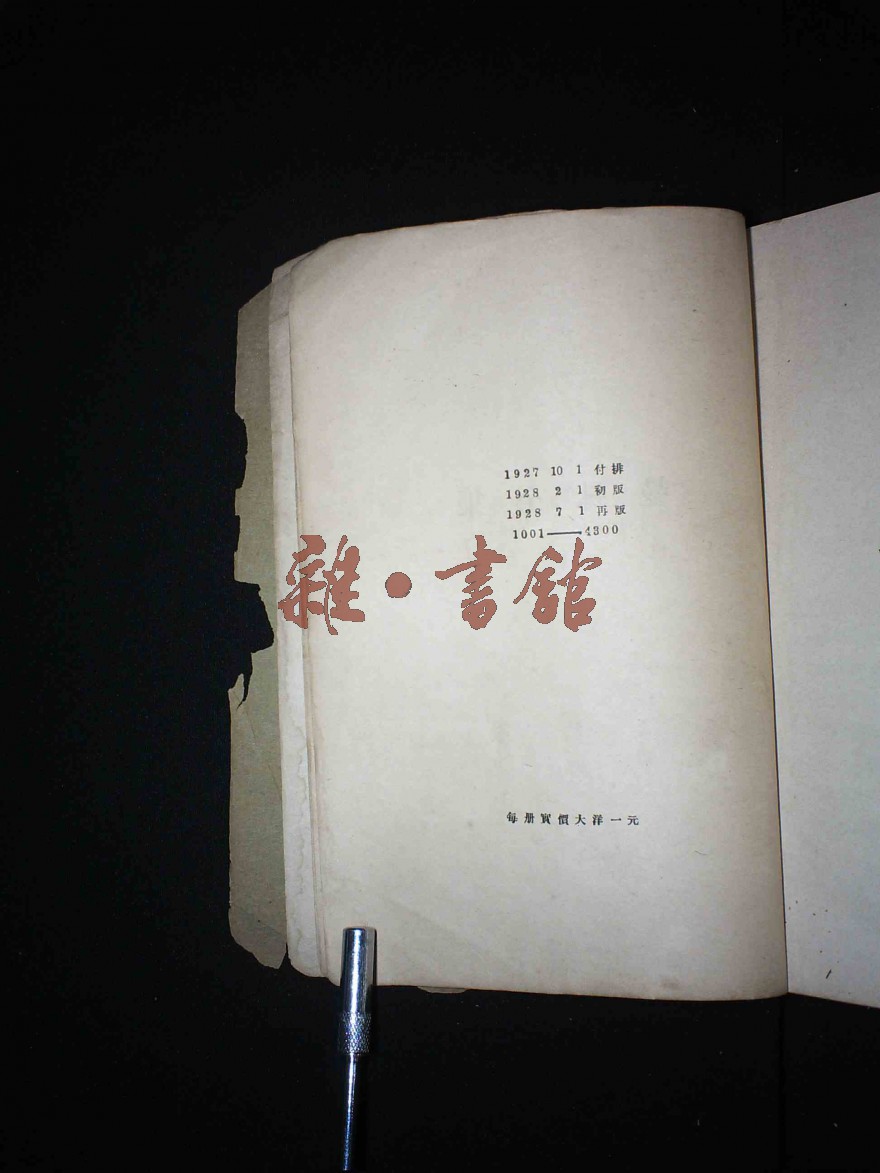 1927 10 1 付排
1928 2 1 初版
1928 7 1 再版
1001——4300
雜·書館
每册實價大洋一元